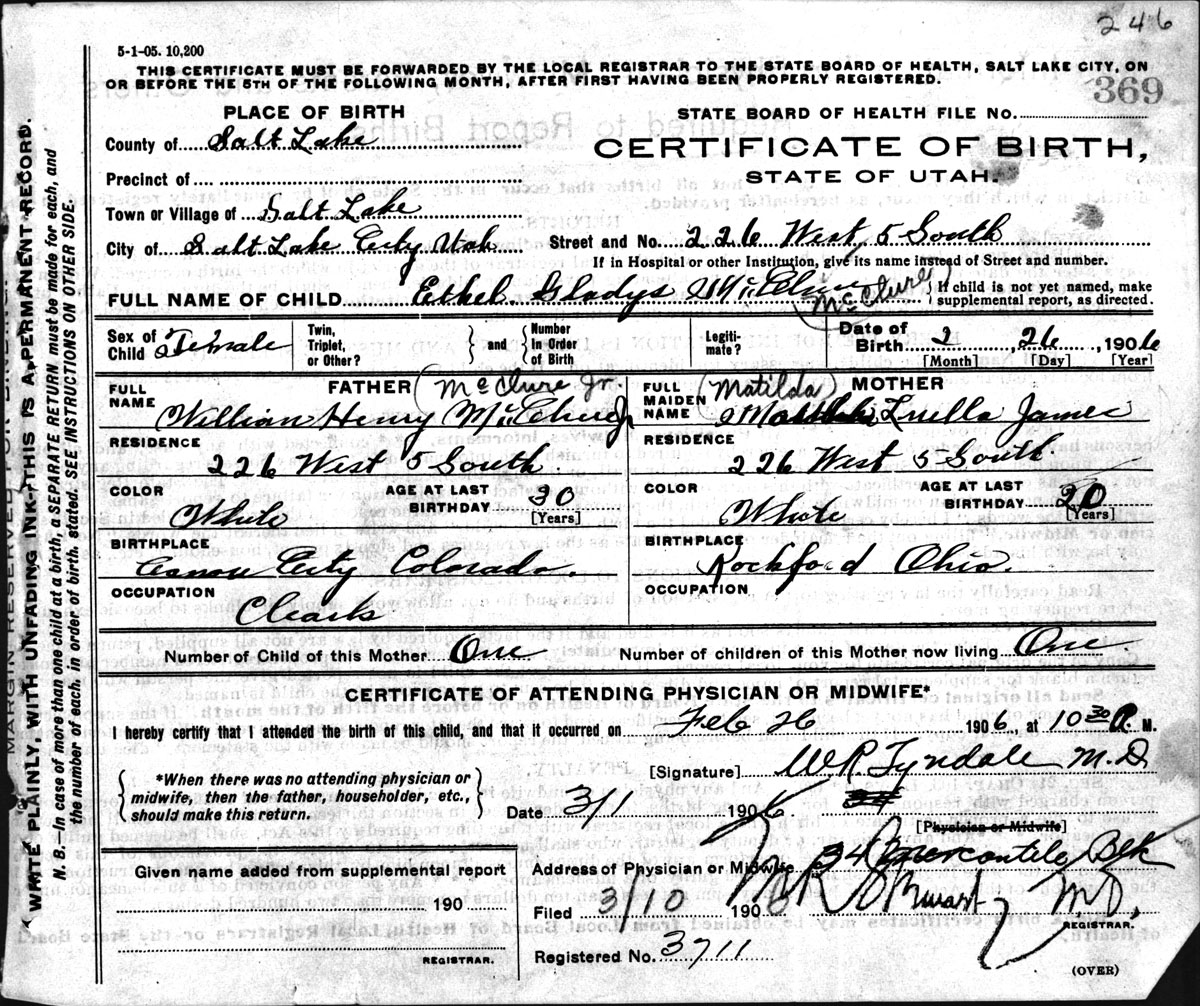 246
5-1-05. 10,200
THIS CERTIFICATE MUST BE FORWARDED BY THE LOCAL REGISTRAR TO THE STATE BOARD OF HEALTH, SALT LAKE CITY, ON
OR BEFORE THE 5TH OF THE FOLLOWING MONTH, AFTER FIRST HAVING BEEN PROPERLY REGISTERED.
369
PLACE OF BIRTH
STATE BOARD OF HEALTH FILE NO.
County of Salt Lake
CERTIFICATE OF BIRTH,
STATE OF UTAH.
Precinct of
Town or Village of Salt Lake
City of Salt Lake City Utah Street and No. 226 West 5 South
If in Hospital or other Institution, give its name instead of Street and number.
FULL NAME OF CHILD Ethel Gladys McClure
McClure
If child is not yet named, make
supplemental report, as directed.
Sex of Child Female
Twin, Triplet, or Other? and Number In Order of Birth
Legitimate?
Date of Birth 2 26, 1906
[Month] [Day] [Year]
FULL NAME FATHER (McClure Jr.)
William Henry McClure Jr
FULL MAIDEN NAME (Matilda) MOTHER
Luella James
RESIDENCE 226 West 5 South
RESIDENCE 226 West 5 South
COLOR White AGE AT LAST BIRTHDAY 30 [Years]
COLOR White AGE AT LAST BIRTHDAY 20 [Years]
BIRTHPLACE Canon City Colorado.
BIRTHPLACE Rockford Ohio.
OCCUPATION
OCCUPATION
Number of Child of this Mother One Number of children of this Mother now living One
CERTIFICATE OF ATTENDING PHYSICIAN OR MIDWIFE*
I hereby certify that I attended the birth of this child, and that it occurred on Feb 26 1906, at 10 30 A. M.
*When there was no attending physician or
midwife, then the father, householder, etc.,
should make this return.
[Signature] W.R. Tyndale M.D
Date 3/1 1906
[Physician or Midwife]
Given name added from supplemental report
190
REGISTRAR.
Address of Physician or Midwife Mercantile Blk
Filed 3/10 1906 M.D.
REGISTRAR.
Registered No. 3711
(OVER)
MARGIN RESERVED FOR
WRITE PLAINLY, WITH UNFADING INK—THIS IS A PERMANENT RECORD.
N. B.—In case of more than one child at a birth, a SEPARATE RETURN must be made for each, and
the number of each, in order of birth, stated. SEE INSTRUCTIONS ON OTHER SIDE.